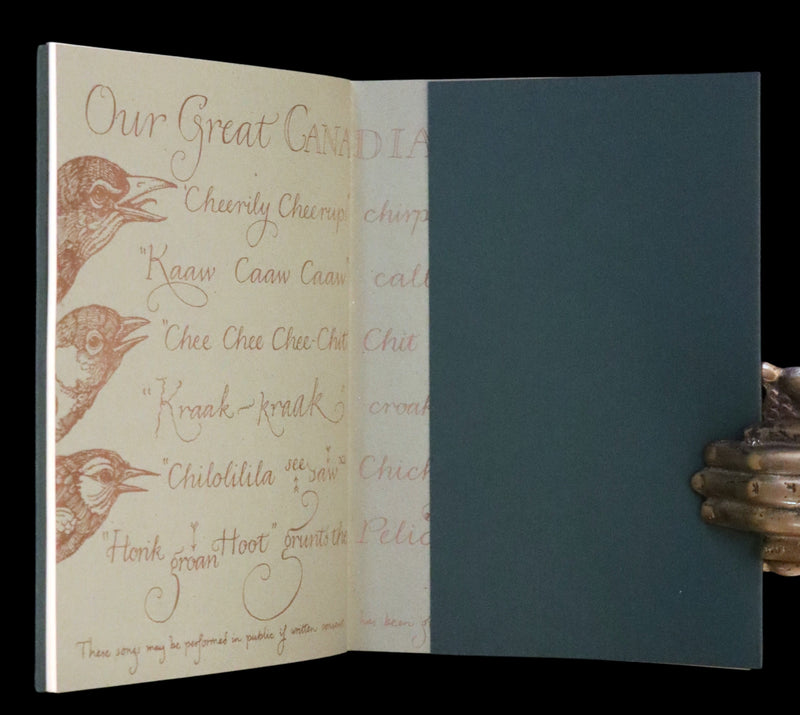 Our Great CANADIA
"Cheerily Cheerup" chirp
"Kaaw Caaw Caaw" call
"Chee Chee Chee-Chit Chit
"Kraak-kraak" croak
"Chilolilila see saw" Chick
"Honk groan Hoot" grunts the Pelic
These songs may be performed in public if written consent has been